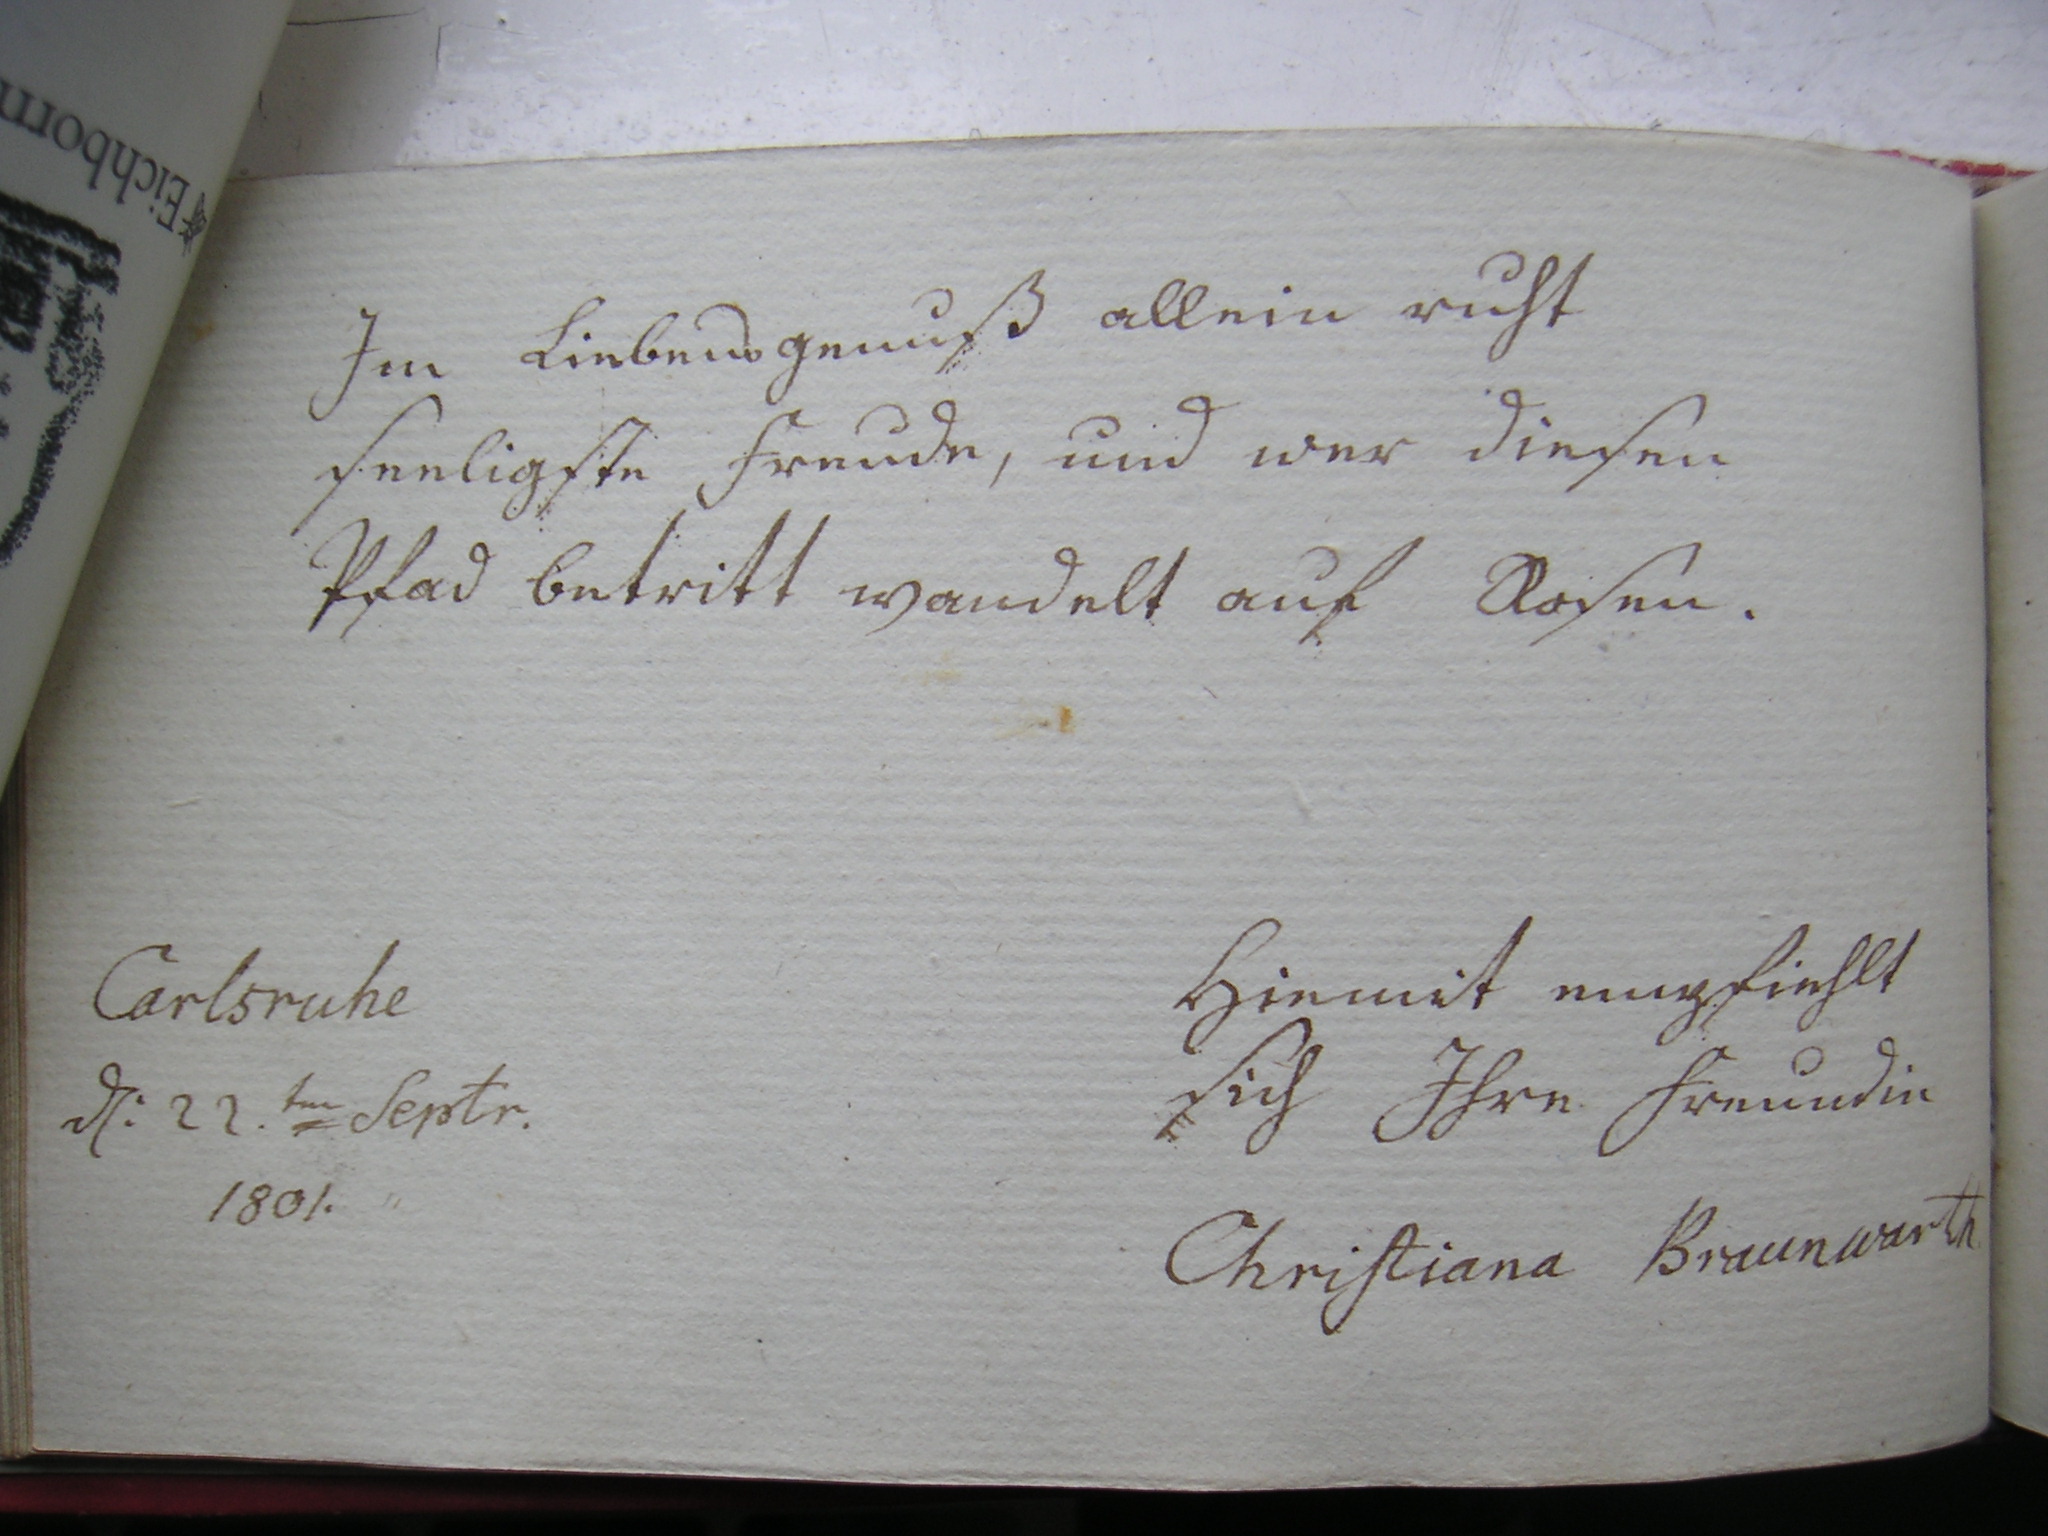 Eichborn
Im Liebensgenuß allein ruht
seeligste Freude, und wer diesen
Pfad betritt wandelt auf Rosen.
Carlsruhe
d: 22.ten Septr.
1801.
Hiemit empfiehlt
sich Ihre Freundin
Christiana Braunwarth